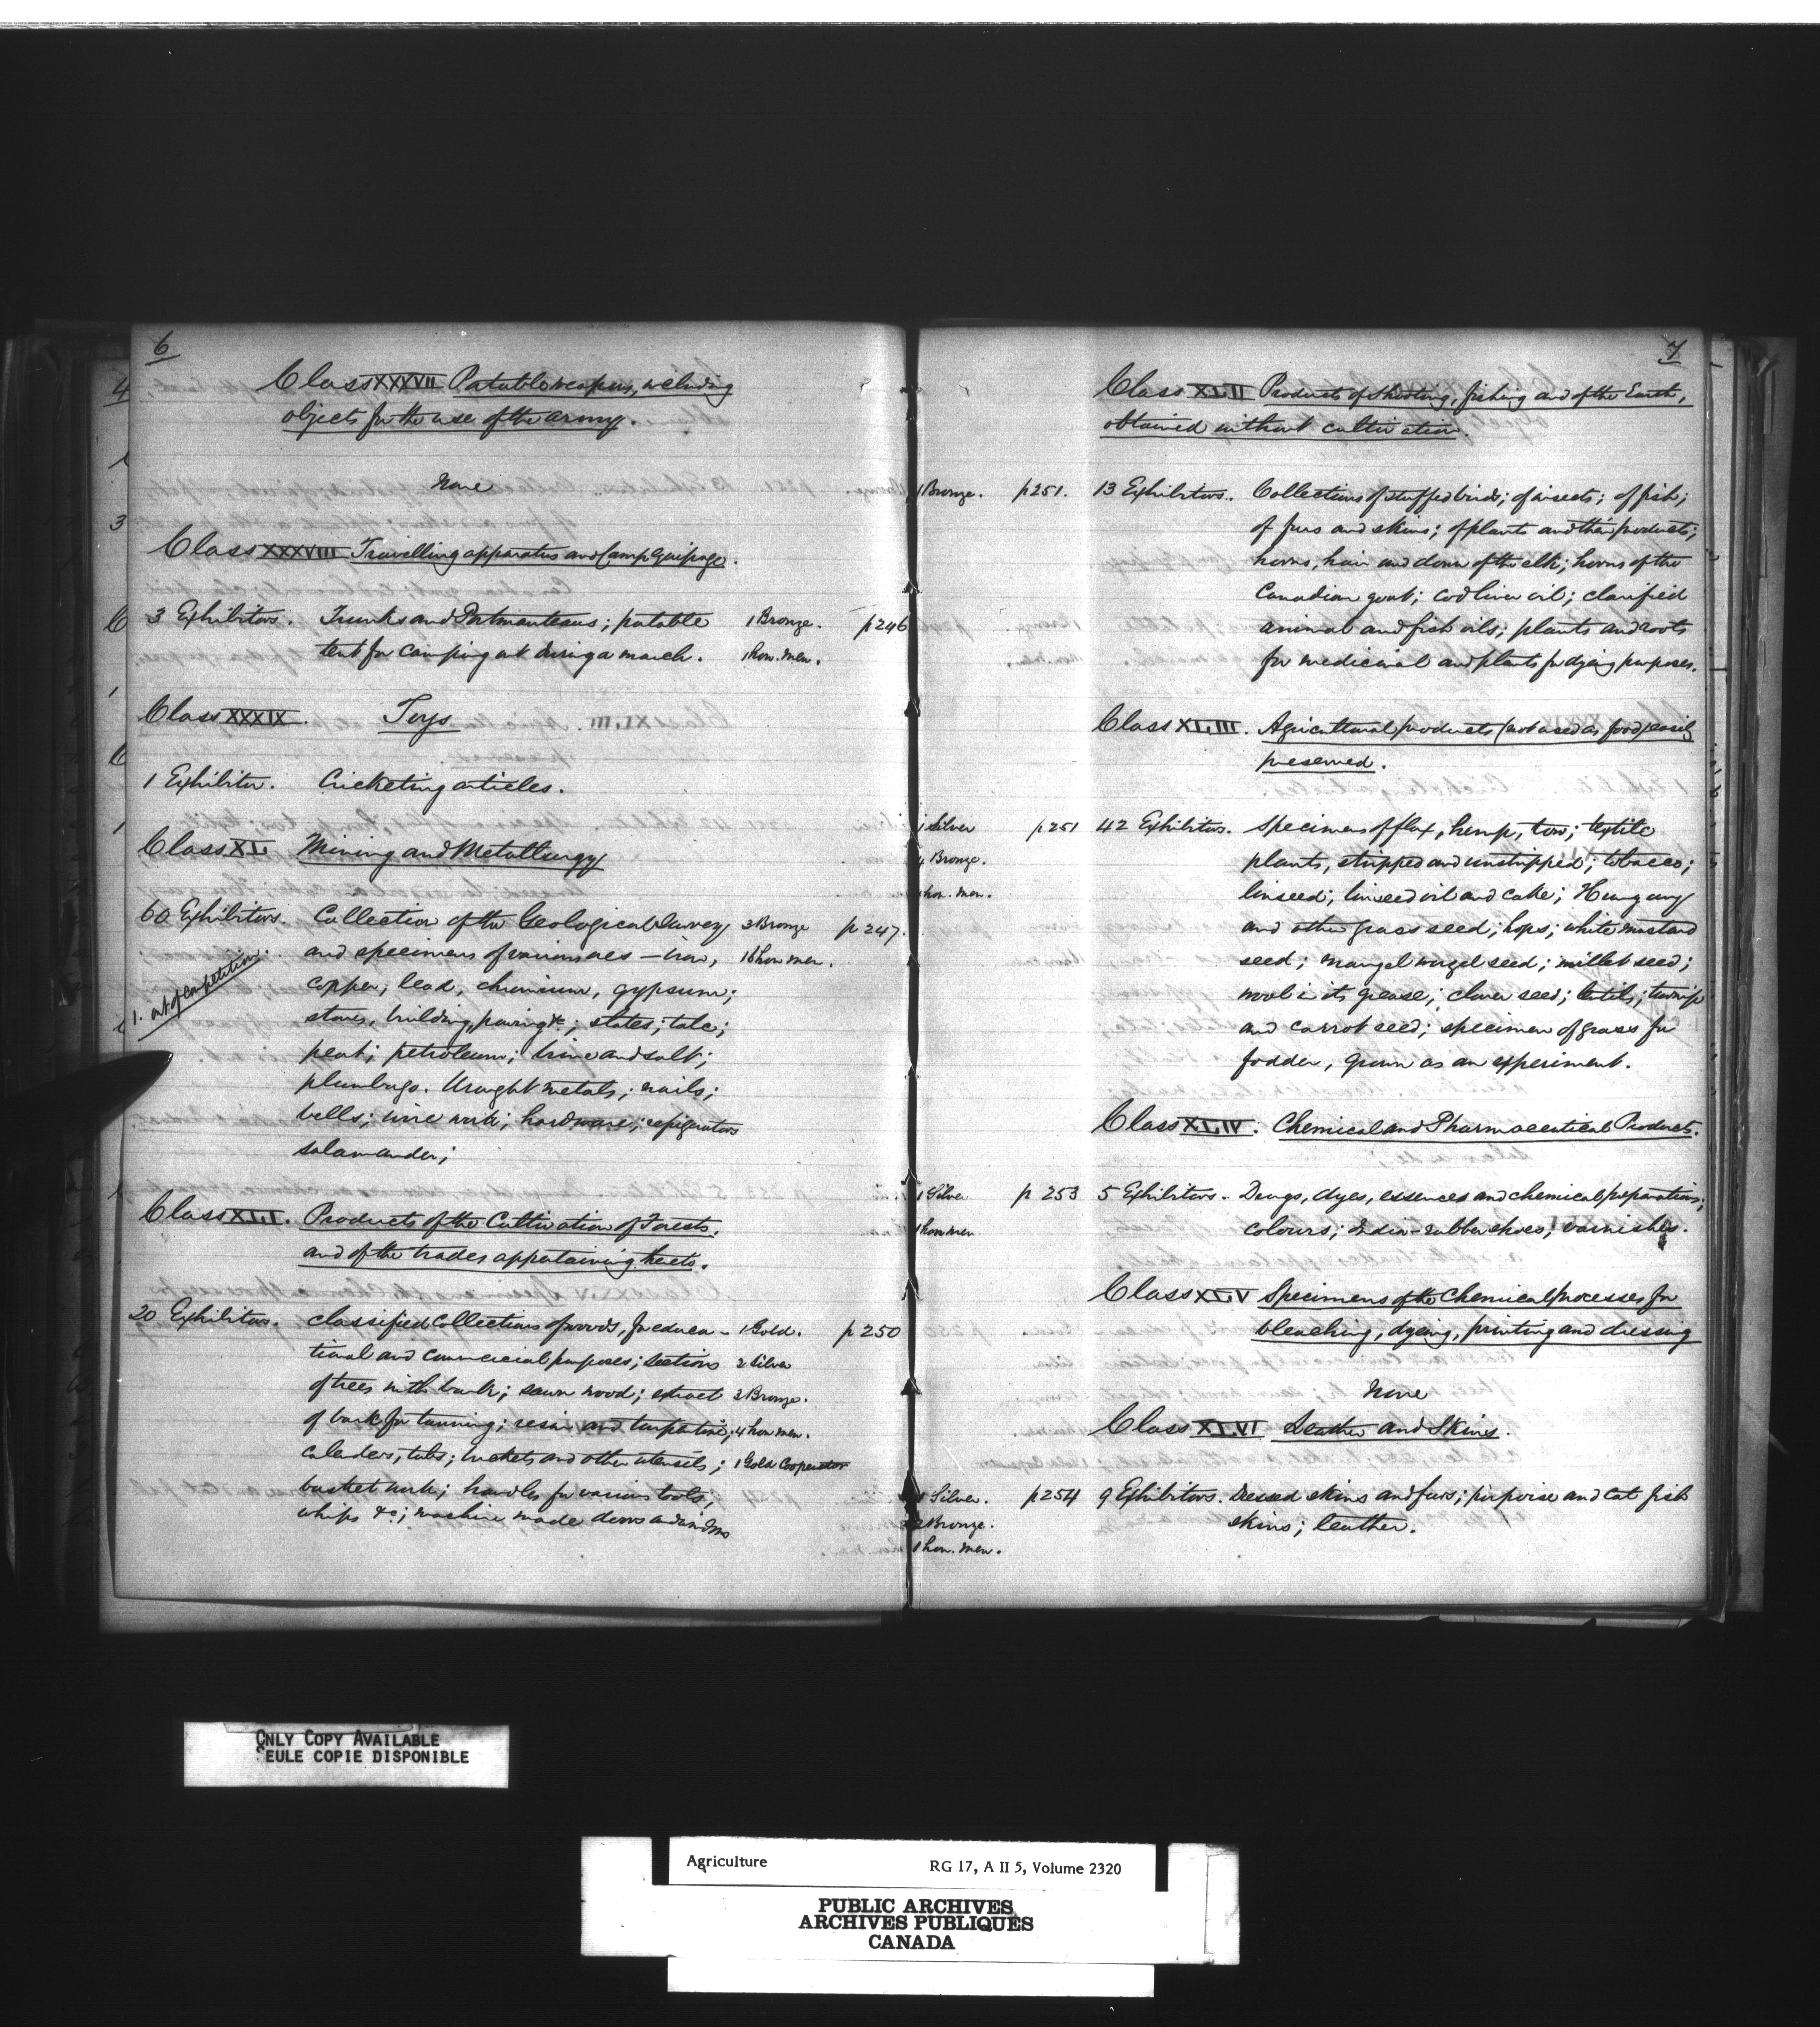 6
Class XXXVII Portable weapons, including
objects for the use of the army.
None
Class XXXVIII Travelling apparatus and Camp Equipage.
3 Exhibitors. Trunks and Portmanteaus; portable 1 Bronze. p 246
tent for camping out during a march. 1 hon. men.
Class XXXIX. Toys
1 Exhibitor. Cricketing articles.
Class XL Mining and Metallurgy
60 Exhibitors. Collection of the Geological Survey 3 Bronze p 247.
and specimens of various ores — iron, 16 hon men.
1. out of competition.
copper, lead, chromium, gypsum;
stones, building, paving &c; slates; talc;
peat; petroleum; brine and salt;
plumbago. Wrought metals; nails;
bells; wire work; hardware; refrigerators
salamander;
Class XLI. Products of the Cultivation of Forests.
and of the trades appertaining thereto.
20 Exhibitors. Classified Collections of woods, for educa- 1 Gold. p 250
tional and commercial purposes; sections 2 Silver
of trees with bark; sawn wood; extract 3 Bronze.
of bark for tanning; resin and turpentine; 4 hon men.
tubs; buckets and other utensils; 1 Gold Cooperator
basket work; handles for various tools,
whips &c; machine made doors and windows
7
Class XLII Products of Shooting, fishing and of the Earth,
obtained without cultivation.
1 Bronze. p 251. 13 Exhibitors. Collections of stuffed birds; of insects; of fish;
of furs and skins; of plants and their products;
horns, hair and down of the elk; horns of the
Canadian goat; cod liver oil; clarified
animal and fish oils; plants and roots
for medicinal and plants for dying purposes.
Class XLIII. Agricultural products (not used as food) easily
preserved.
1 Silver p 251 42 Exhibitors. Specimens of flax, hemp, tow; textile
4 Bronze. plants, stripped and unstripped; tobacco;
hon. men. linseed; linseed oil and cake; Hungary
and other grass seed; hops; white mustard
seed; mangel wurzel seed; millet seed;
wool in its grease; clover seed; lentils; turnip
and carrot seed; specimen of grass for
fodder, grown as an experiment.
Class XLIV. Chemical and Pharmaceutical Products.
1 Silver p 253 5 Exhibitors. Drugs, dyes, essences and chemical preparations;
1 hon men colours; India-rubber shoes; varnishes.
Class XLV Specimens of the Chemical processes for
bleaching, dyeing, printing and dressing
None
Class XLVI Leather and Skins.
1 Silver. p 254 9 Exhibitors. Dressed skins and furs; porpoise and cat fish
2 Bronze. skins; leather.
1 hon. men.
ONLY COPY AVAILABLE
SEULE COPIE DISPONIBLE
Agriculture RG 17, A II 5, Volume 2320
PUBLIC ARCHIVES
ARCHIVES PUBLIQUES
CANADA